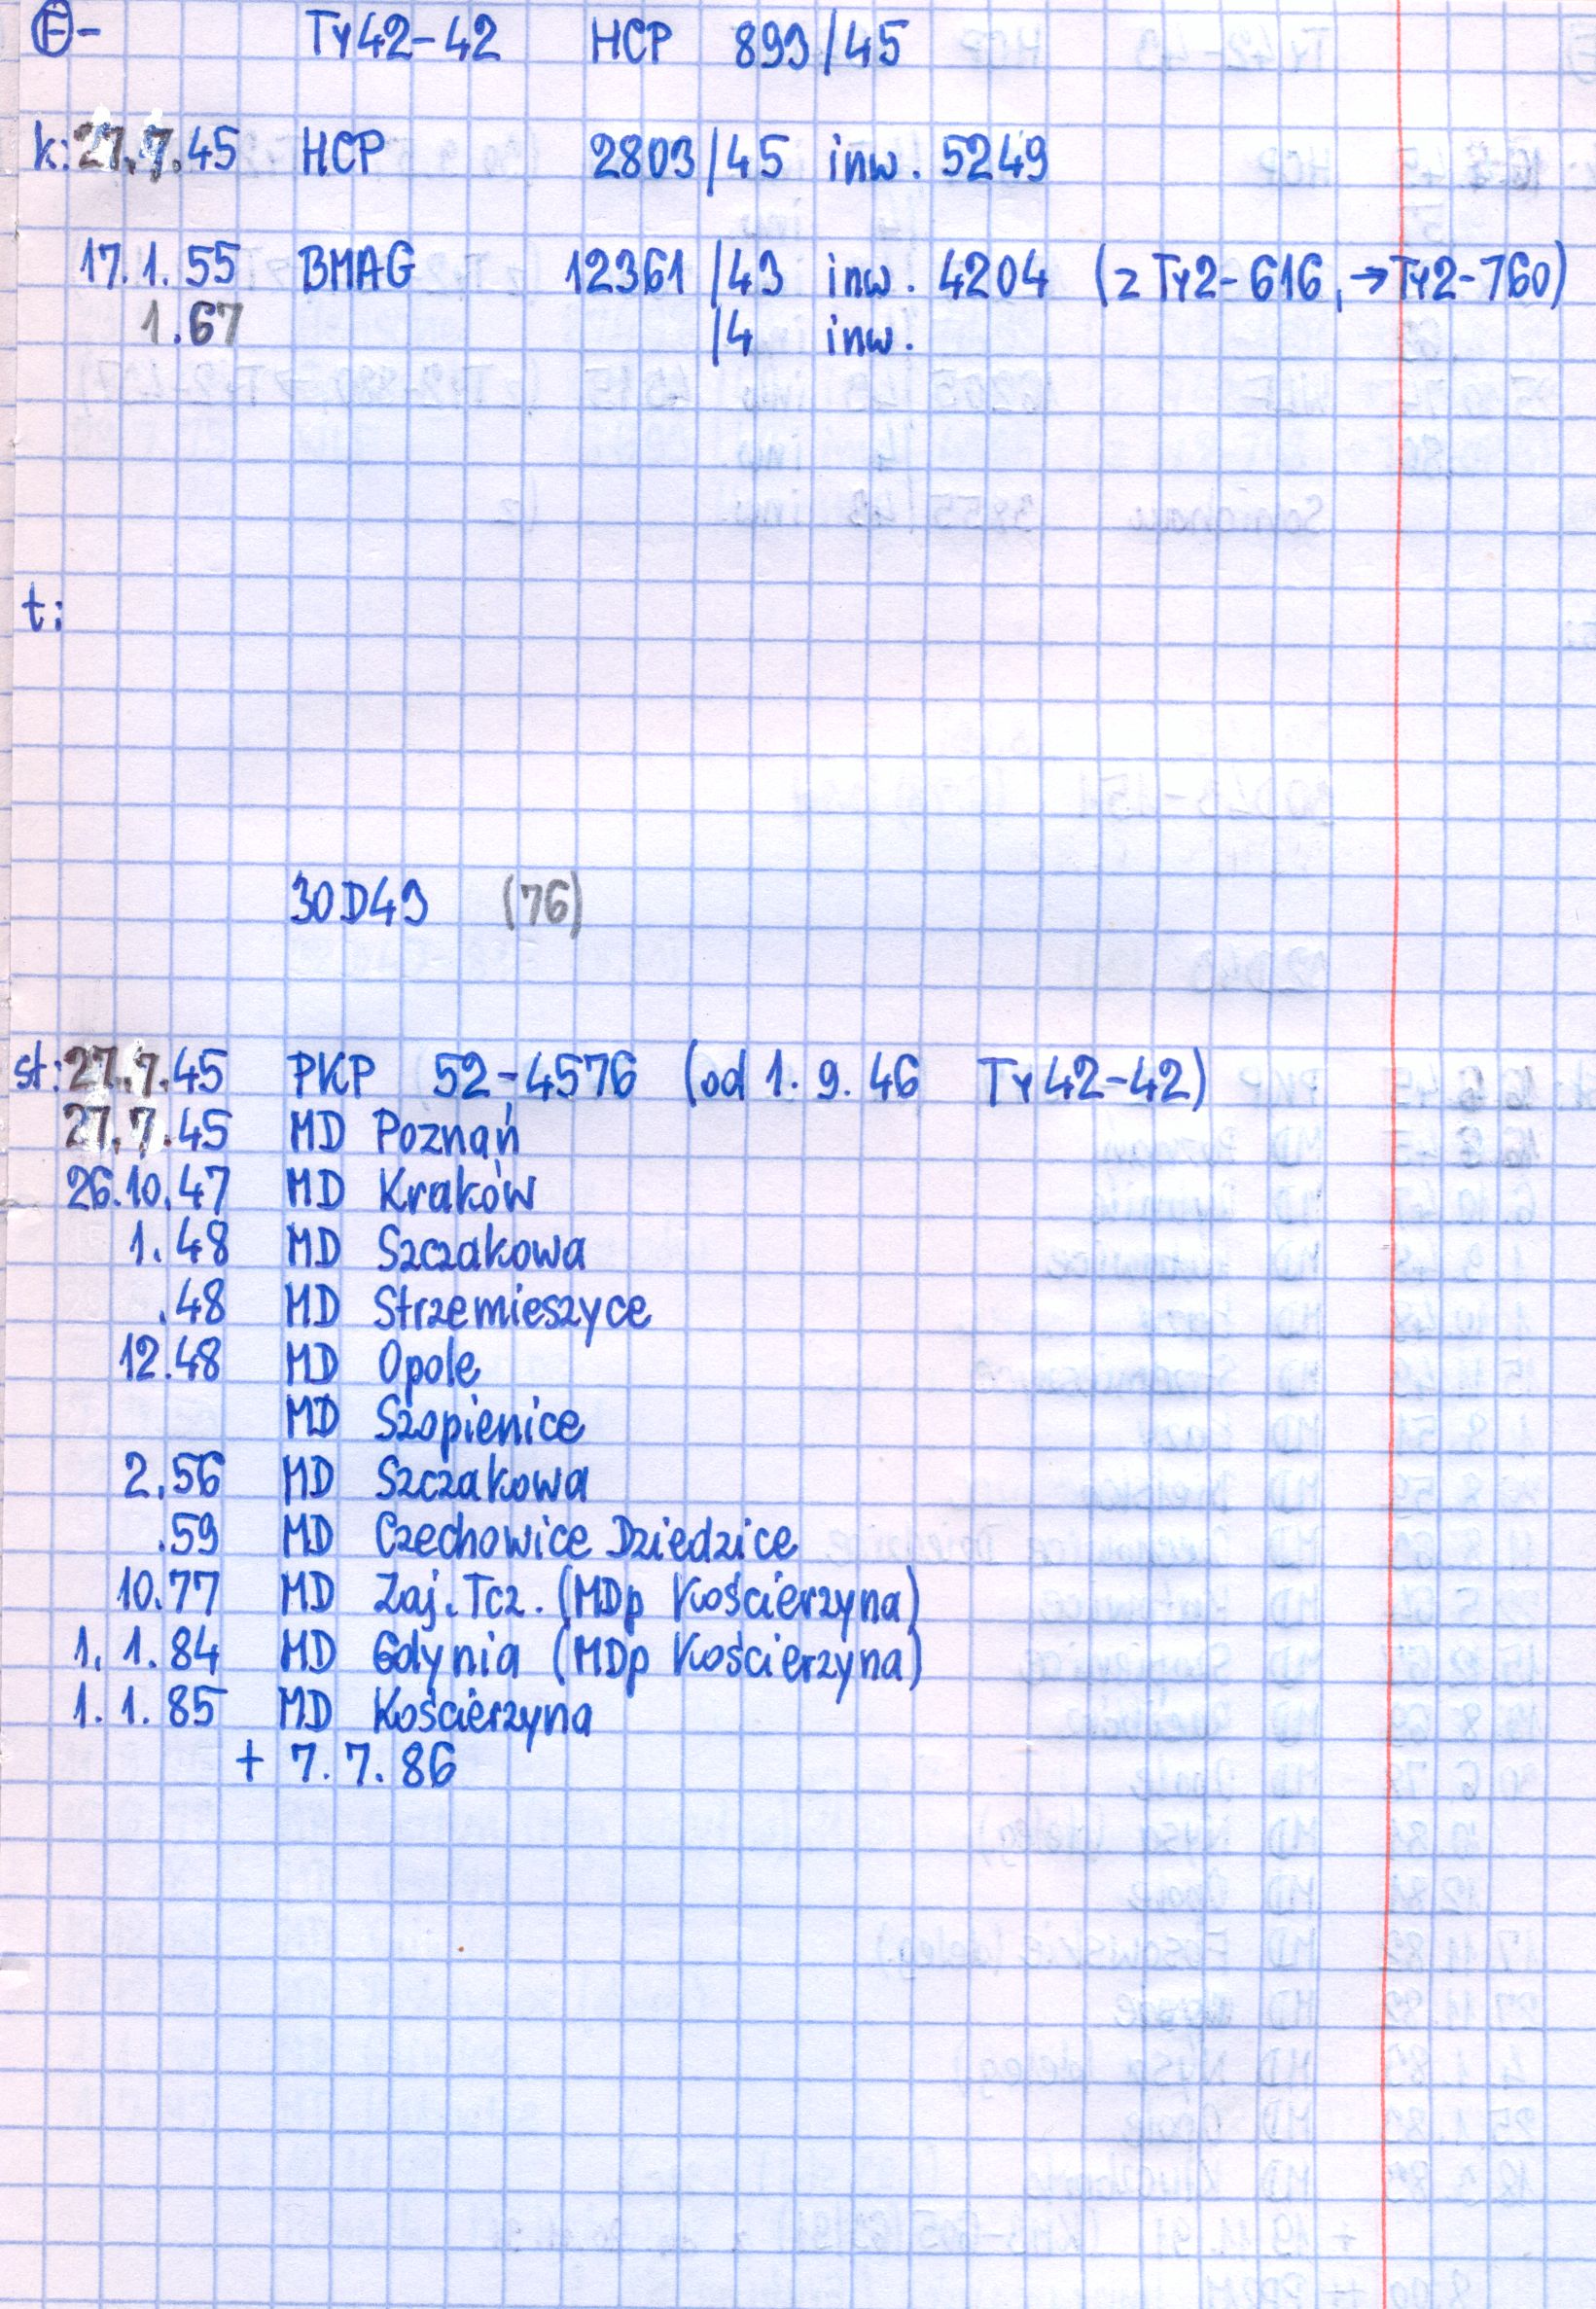 Ⓔ- Ty42-42 HCP 899/45
k: 27.7.45 HCP 2803/45 inw. 5249
17.1.55 BMAG 12361/43 inw. 4204 (z Ty2-616, →Ty2-760)
1.67 /4 inw.
t:
30D49 (76)
st: 27.7.45 PKP 52-4576 (od 1.9.46 Ty42-42)
27.7.45 MD Poznań
26.10.47 MD Kraków
1.48 MD Szczakowa
.48 MD Strzemieszyce
12.48 MD Opole
MD Szopienice
2.56 MD Szczakowa
.59 MD Czechowice Dziedzice
10.77 MD Zaj. Tcz. (MDp Kościerzyna)
1.1.84 MD Gdynia (MDp Kościerzyna)
1.1.85 MD Kościerzyna
+ 7.7.86